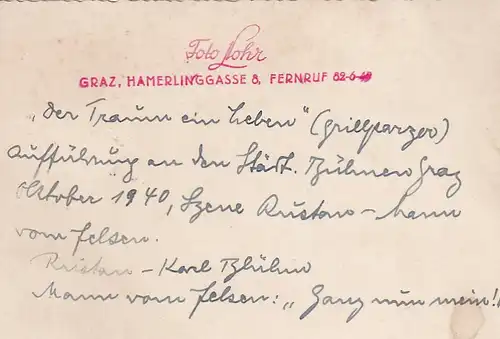 Foto Lohr
GRAZ, HAMERLINGGASSE 8, FERNRUF 82-6-49
„Der Traum ein Leben" (Grillparzer)
Aufführung an den Städt. Bühnen Graz
Oktober 1940, Szene Rustan – Mann
vom Felsen.
Rustan – Karl Blühm
Mann vom Felsen: „Ganz nun mein!"